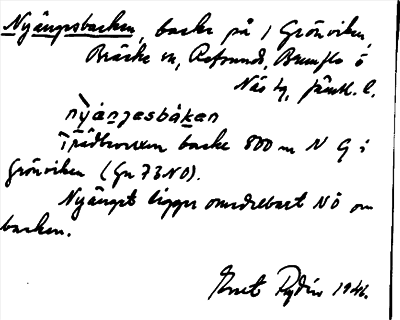 Nyängesbacken, backe på 1 Grönviken,
Bräcke sn, Refsunds, Brunflo o
Näs tg, Jämtl. l.
nyáŋʒesbákan
Trädbevuxen backe 800 m N G i
Grönviken (Gn 73 NO).
Nyänget ligger omedelbart NÖ om
backen.
Knut Rydin 1946.